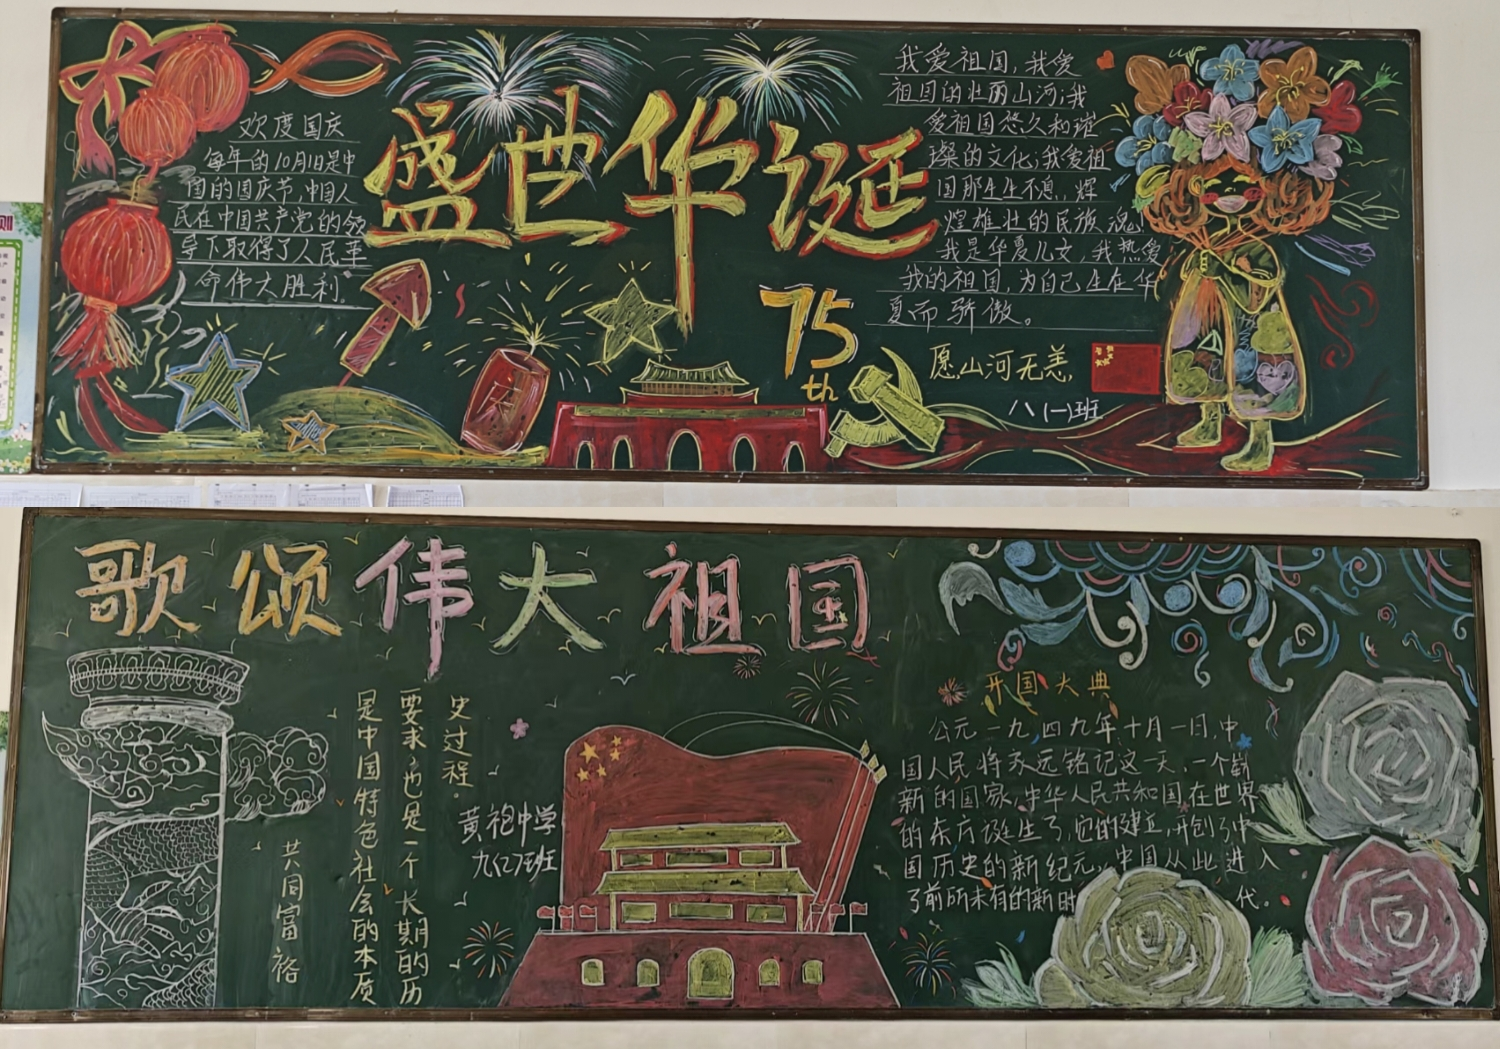 盛世华诞
75th
欢度国庆
每年的10月1日是中
国的国庆节,中国人
民在中国共产党的领
导下取得了人民革
命伟大胜利。
我爱祖国,我爱
祖国的壮丽山河;我
爱祖国悠久和璀
璨的文化;我爱祖
国那生生不息,辉
煌雄壮的民族魂!
我是华夏儿女,我热爱
我的祖国,为自己生在华
夏而骄傲。
愿山河无恙,
八(一)班
歌颂伟大祖国
共同富裕
是中国特色社会的本质
要求,也是一个长期的历
史过程。
中学
班
开国大典
公元一九四九年十月一日,中
国人民将永远铭记这一天,一个崭
新的国家,中华人民共和国在世界
的东方诞生了,它的建立,开创了中
国历史的新纪元,中国从此进入
了前所未有的新时代。